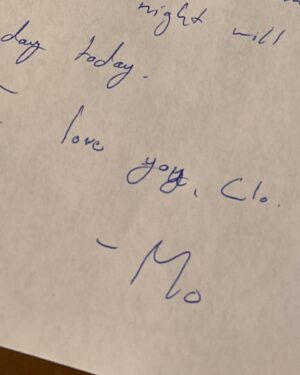 night will
day today.
love you, Clo.
- Mo